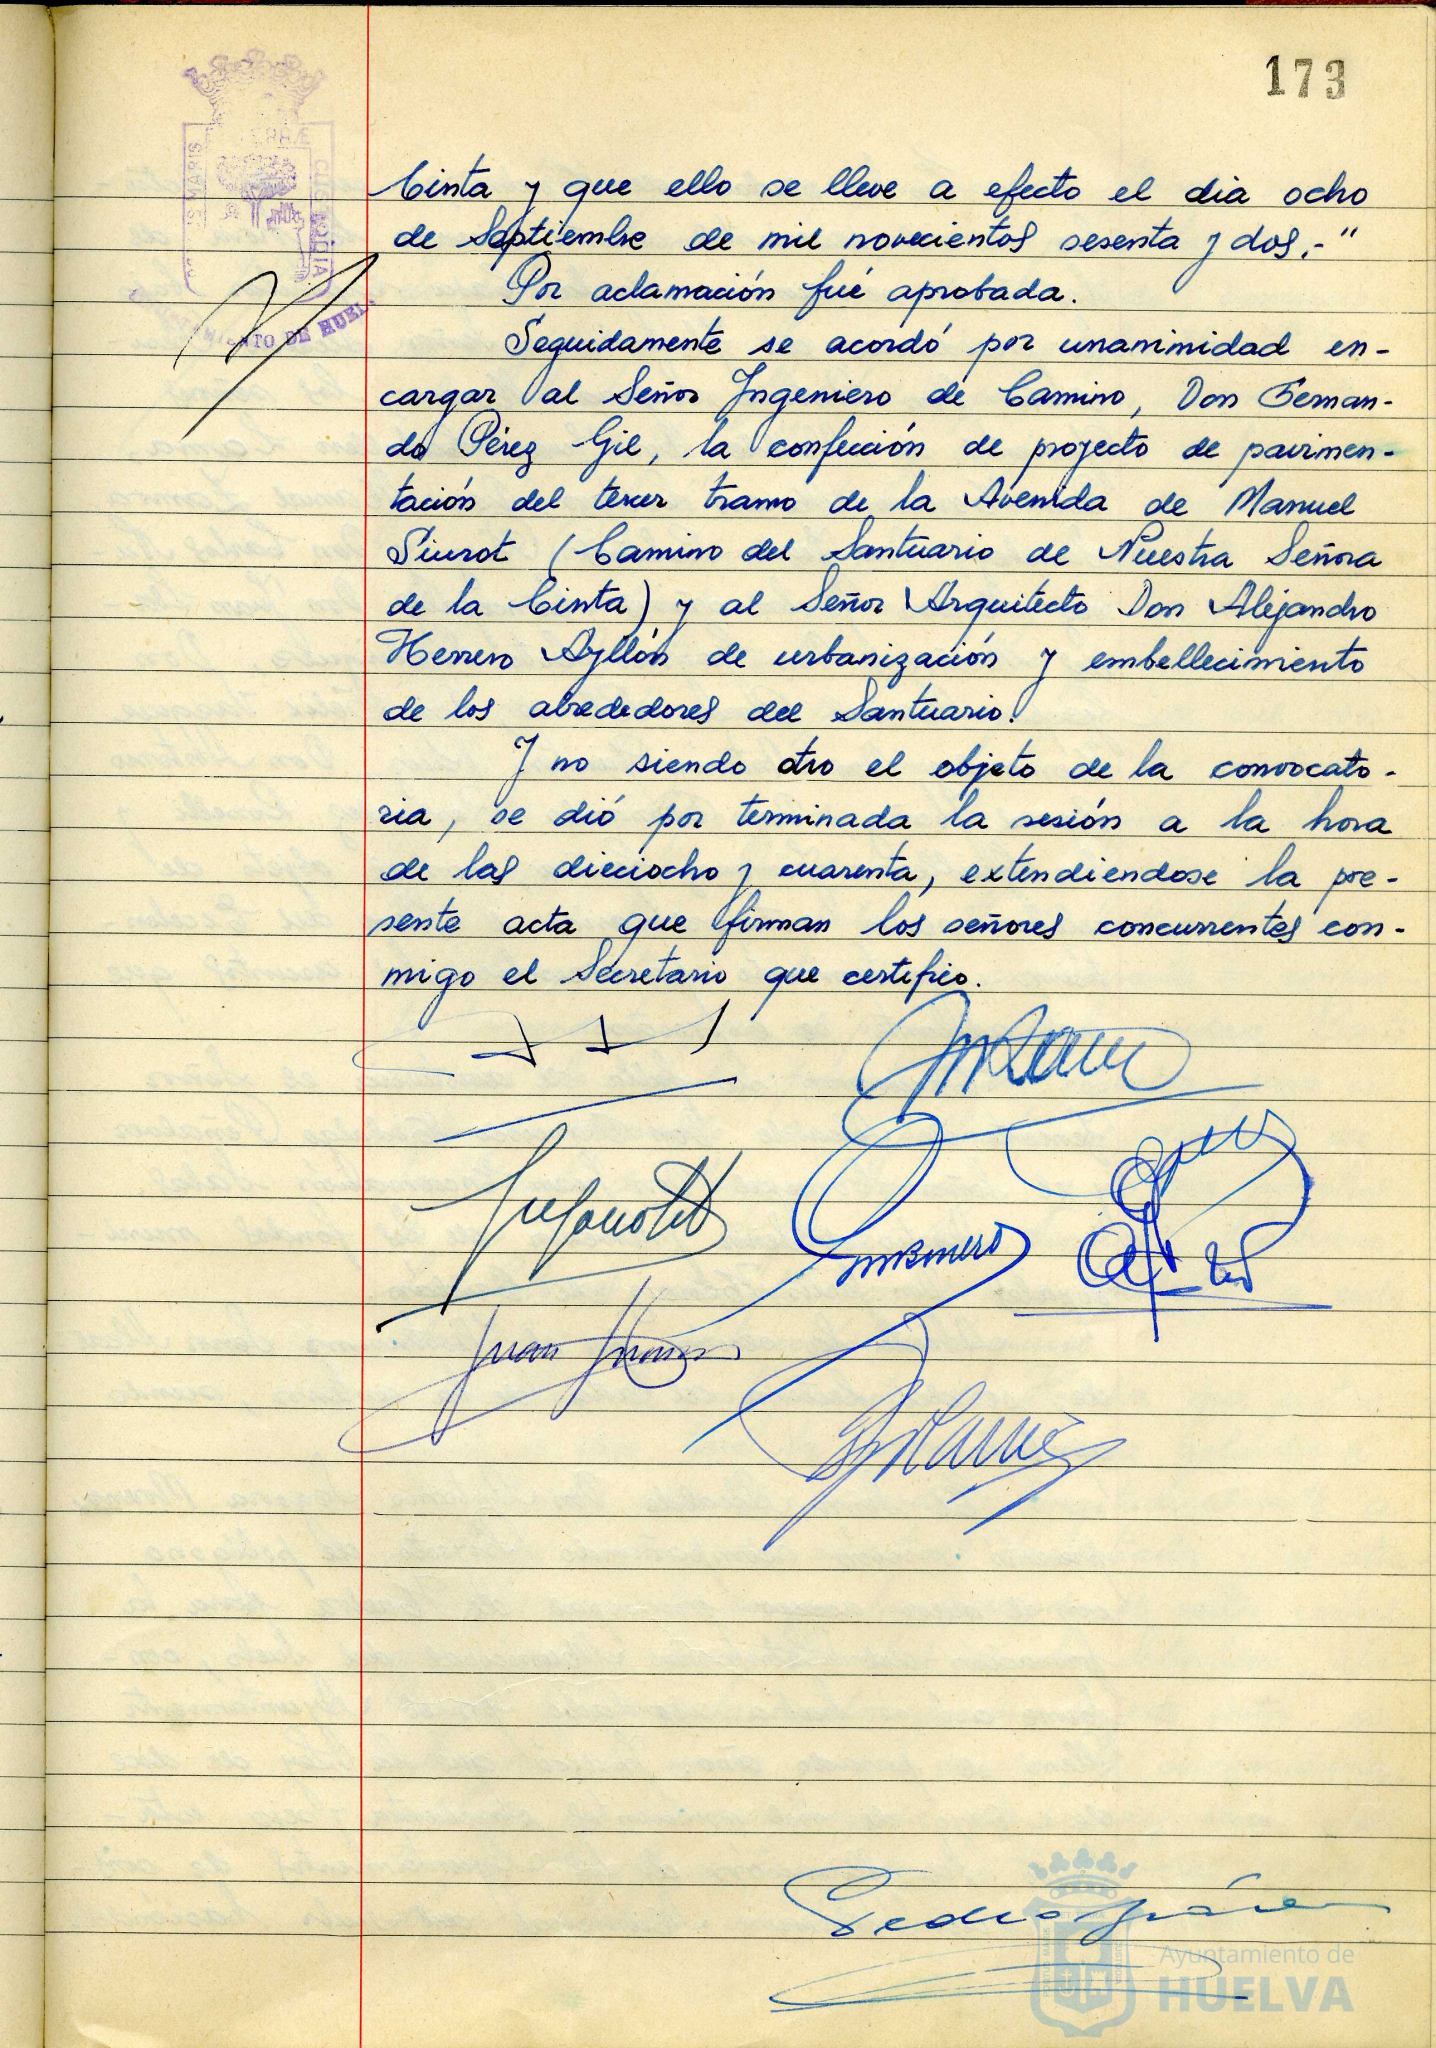 173
Cinta y que ello se lleve a efecto el dia ocho
de Septiembre de mil novecientos sesenta y dos.-"
Por aclamación fué aprobada.
Seguidamente se acordó por unanimidad en-
cargar al Señor Ingeniero de Camino, Don Fernan-
do Pérez Gil, la confección de proyecto de pavimen-
tación del tercer tramo de la Avenida de Manuel
Siurot (Camino del Santuario de Nuestra Señora
de la Cinta) y al Señor Arquitecto Don Alejandro
Herrero Ayllón de urbanización y embellecimiento
de los alrededores del Santuario.
Y no siendo otro el objeto de la convocato-
ria, se dió por terminada la sesión a la hora
de las dieciocho y cuarenta, extendiendose la pre-
sente acta que firman los señores concurrentes con-
migo el Secretario que certifico.
Juan
Pedro
Ayuntamiento de
HUELVA